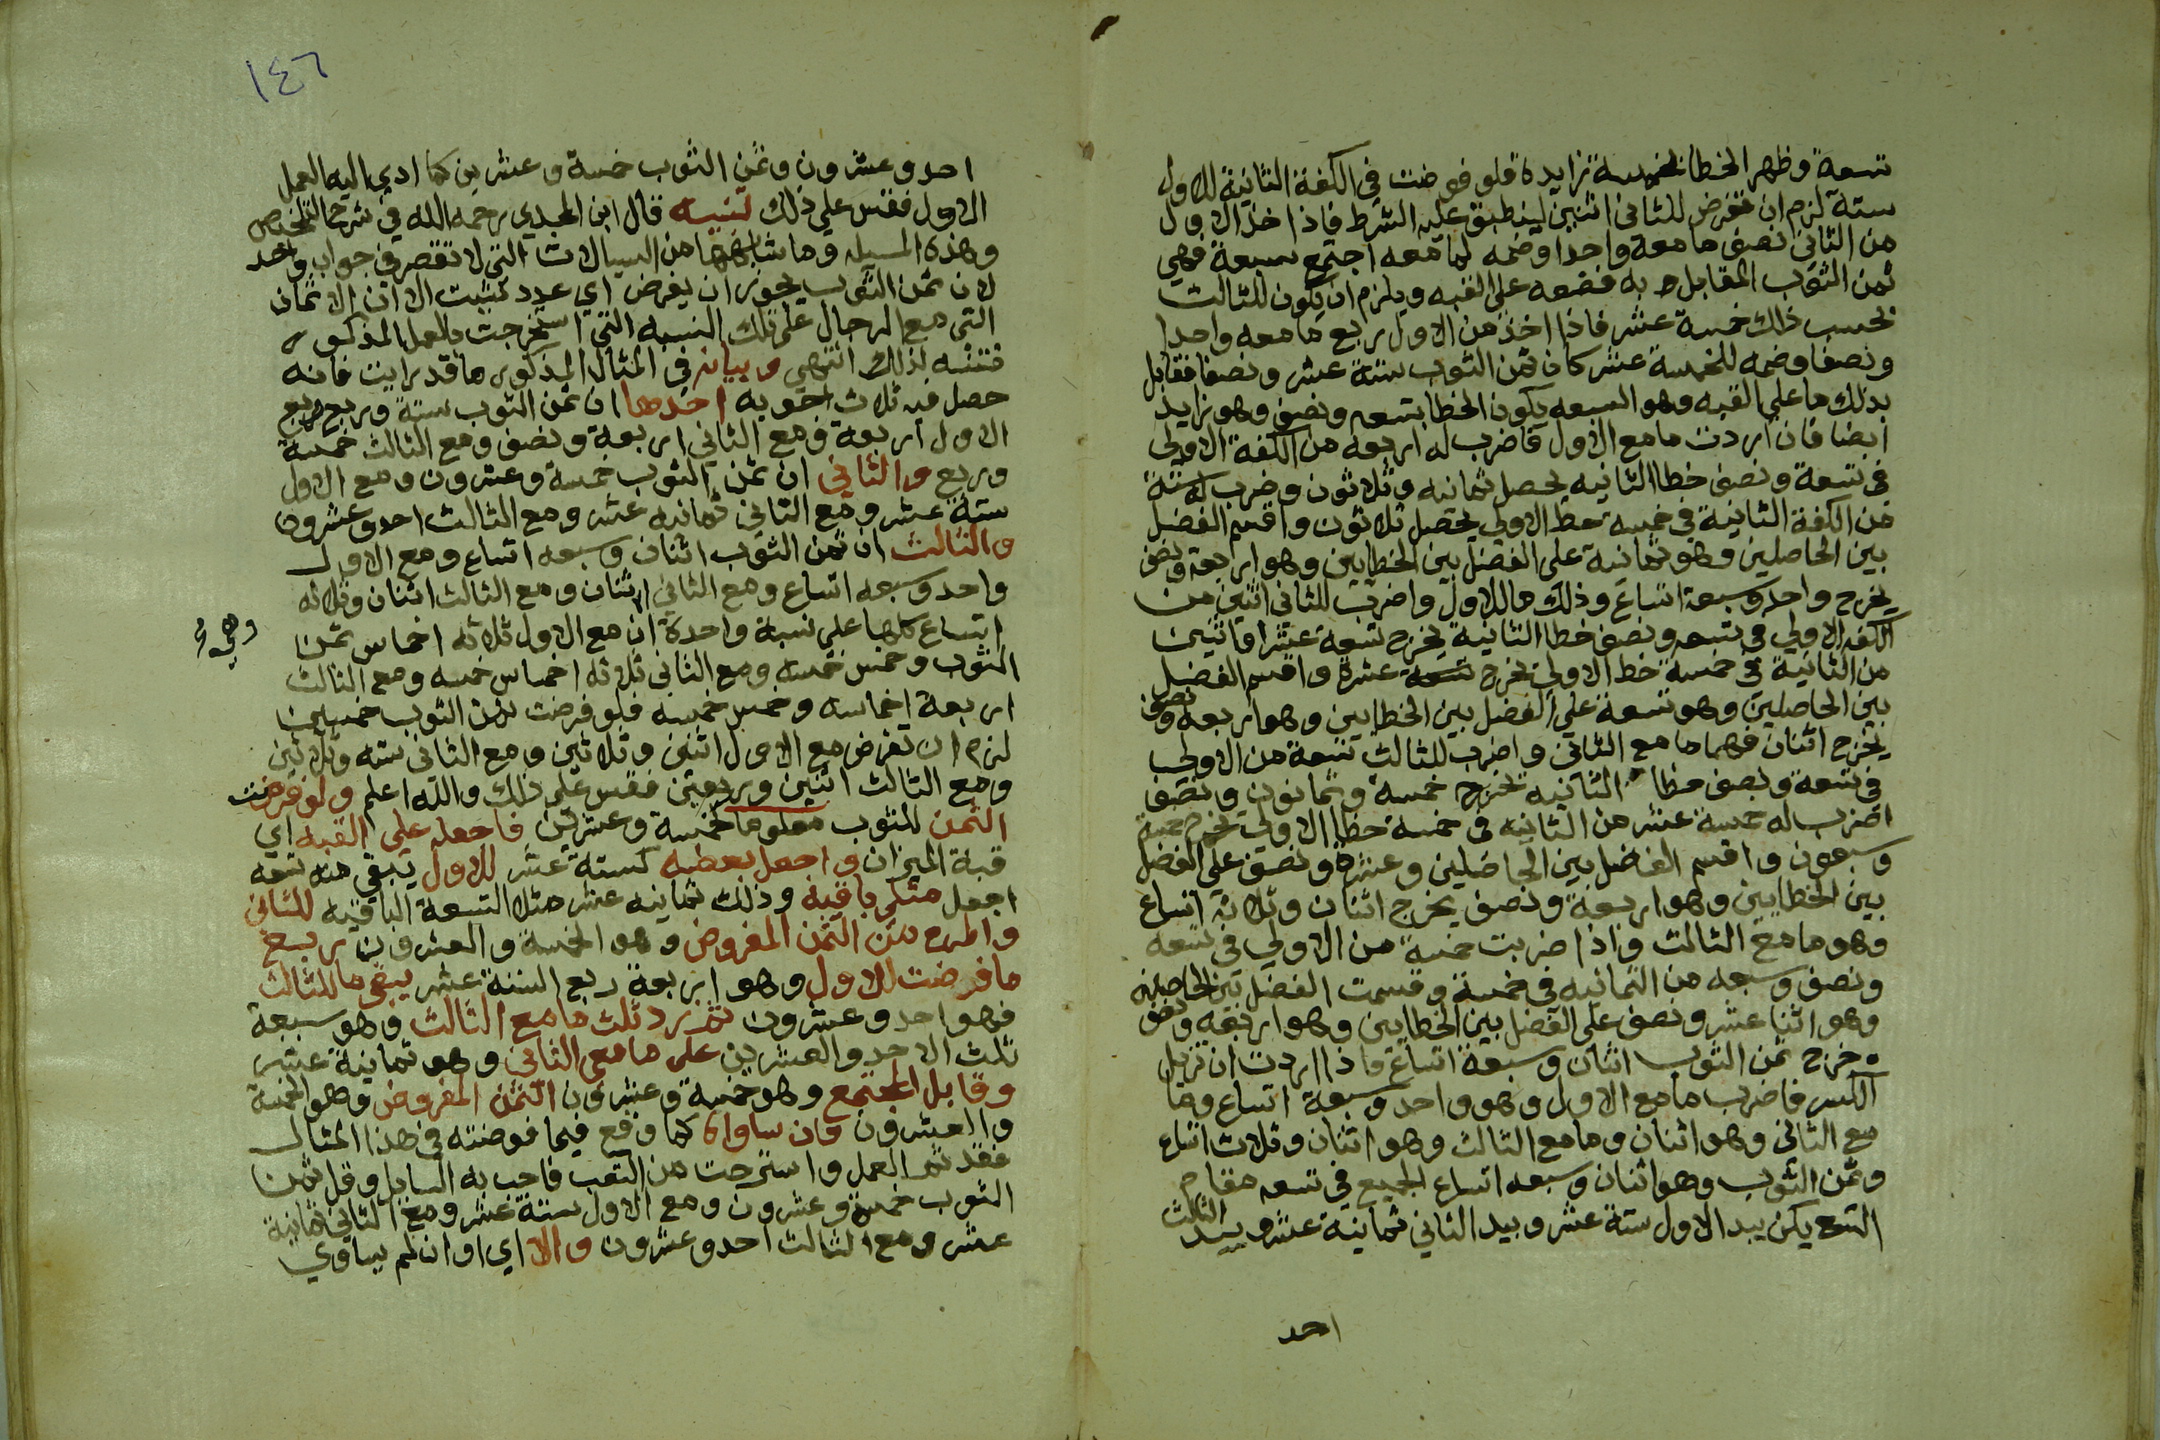 تسعة وظهر الخطا بخمسة زايدة فلو فرضت في الكفة الثانية للاول
ستة لزم ان تفرض للثاني اثنين لينطبق عليه الشرط فاذا اخذ الاول
من الثاني نصف ما معه واحدا وضمه لما معه اجتمع سبعة فهي
ثمن الثوب المقابل به فضعه على القبه ويلزم ان يكون للثالث
بحسب ذلك خمسة عشر فاذا اخذ من الاول ربع ما معه واحدا
ونصفا وضمه للخمسة عشر كان ثمن الثوب ستة عشر ونصفا فقابل
بذلك ما على القبه وهو السبعه يكون الخطا بتسعه ونصف وهو زايد
ايضا فان اردت ما مع الاول فاضرب له اربعه من الكفة الاولى
في تسعة ونصف خطا الثانيه يحصل ثمانيه وثلاثون وضرب له ستة
من الكفة الثانية في خمسه خطا الاولي يحصل ثلاثون واقسم الفضل
بين الحاصلين وهو ثمانية على الفضل بين الخطايين وهو اربعة ونصف
يخرج واحد وسبعة اتساع وذلك ما للاول واضرب للثاني اثنين من
الكفه الاولي في تسعه ونصف خطا الثانية يخرج تسعة عشر واثنين
من الثانية في خمسة خطا الاولي يخرج عشرة واقسم الفضل
بين الحاصلين وهو تسعة علي الفضل بين الخطايين وهو اربعه ونصف
يخرج اثنان فهما ما مع الثاني واضرب للثالث تسعة من الاولي
في تسعة ونصف خطا الثانيه تخرج خمسة وثمانون ونصف
اضرب له خمسة عشر من الثانيه في خمسة خطا الاولي تخرج خمسة
وسبعون واقسم الفضل بين الحاصلين وعشرة ونصف علي الفضل
بين الخطايين وهو اربعة ونصف يخرج اثنان وثلاثة اتساع
وهو ما مع الثالث واذا ضربت خمسة من الاولي في تسعه
ونصف وسبعه من الثمانيه في خمسة وقسمت الفضل بين الحاصلين
وهو اثنا عشر ونصف على الفضل بين الخطايين وهو اربعه ونصف
خرج ثمن الثوب اثنان وسبعة اتساع فاذا اردت ان تزيل
الكسر فاضرب ما مع الاول وهو واحد وسبعة اتساع وما
مع الثاني وهو اثنان وما مع الثالث وهو اثنان وثلاث اتساع
وثمن الثوب وهو اثنان وسبعه اتساع الجميع في تسعه مقام
التسع يكن بيد الاول ستة عشر وبيد الثاني ثمانية عشر وبيد الثالث
احد
١٤٦
احد وعشرون وثمن الثوب خمسة وعشرين كما ادي اليه العمل
الاول فقس علي ذلك تنبيه قال ابن المجدي رحمه الله في شرح التلخيص
وهذه المسيله وما شابهها من السيالات التي لا تقصر في جواب واحد
لان ثمن الثوب يجوز ان يفرض اي عدد شيت الا ان الاثمان
التي مع الرجال علي تلك النسبه التي استخرجت بالعمل المذكور
فتنبه لذلك انتهي وبيانه في المثال المذكور ما قد رايت فانه
حصل فيه ثلاث اجوبه احدها ان ثمن الثوب ستة وربع ومع
الاول اربعة ومع الثاني اربعة ونصف ومع الثالث خمسة
وربع والثاني ان ثمن الثوب خمسة وعشرون ومع الاول
ستة عشر ومع الثاني ثمانيه عشر ومع الثالث احد وعشرون
والثالث ان ثمن الثوب اثنان وسبعه اتساع ومع الاول
واحد وسبعه اتساع ومع الثاني اثنان ومع الثالث اثنان وثلاثه
اتساع كلها علي نسبة واحدة ان مع الاول ثلاثه اخماس ثمن
الثوب وخمس خمسه ومع الثاني ثلاثه اخماس خمسه ومع الثالث
اربعة اخماسه وخمس خمسه فلو فرضت ثمن الثوب خمسين
لزم ان تفرض مع الاول اثنين وثلاثين ومع الثاني سته وثلاثين
ومع الثالث اثنين واربعين فقس علي ذلك والله اعلم ولو فرضت
الثمن للثوب معلوما كخمسة وعشرين فاجعله علي القبه اي
قبة الميزان واجعل بعضه كستة عشر للاول يبقي منه تسعه
اجعل مثلي باقيه وذلك ثمانيه عشر مثلا التسعة الباقيه للثاني
واطرح من الثمن المفروض وهو الخمسة والعشرون ربع
ما فرضت للاول وهو اربعة ربع الستة عشر يبقي ما للثالث
فهو احد وعشرون ثم زد ثلث ما مع الثالث وهو سبعة
ثلث الاحد والعشرين على ما مع الثاني وهو ثمانية عشر
وقابل المجتمع وهو خمسة وعشرون الثمن المفروض وهو الخمسة
والعشرون فان ساواه كما وقع فيما فرضته في هذا المثال
فقد تم العمل واسترحت من التعب فاجب به السايل وقل ثمن
الثوب خمسة وعشرون ومع الاول ستة عشر ومع الثاني ثمانية
عشر ومع الثالث احد وعشرون والا اي وان لم يساوي